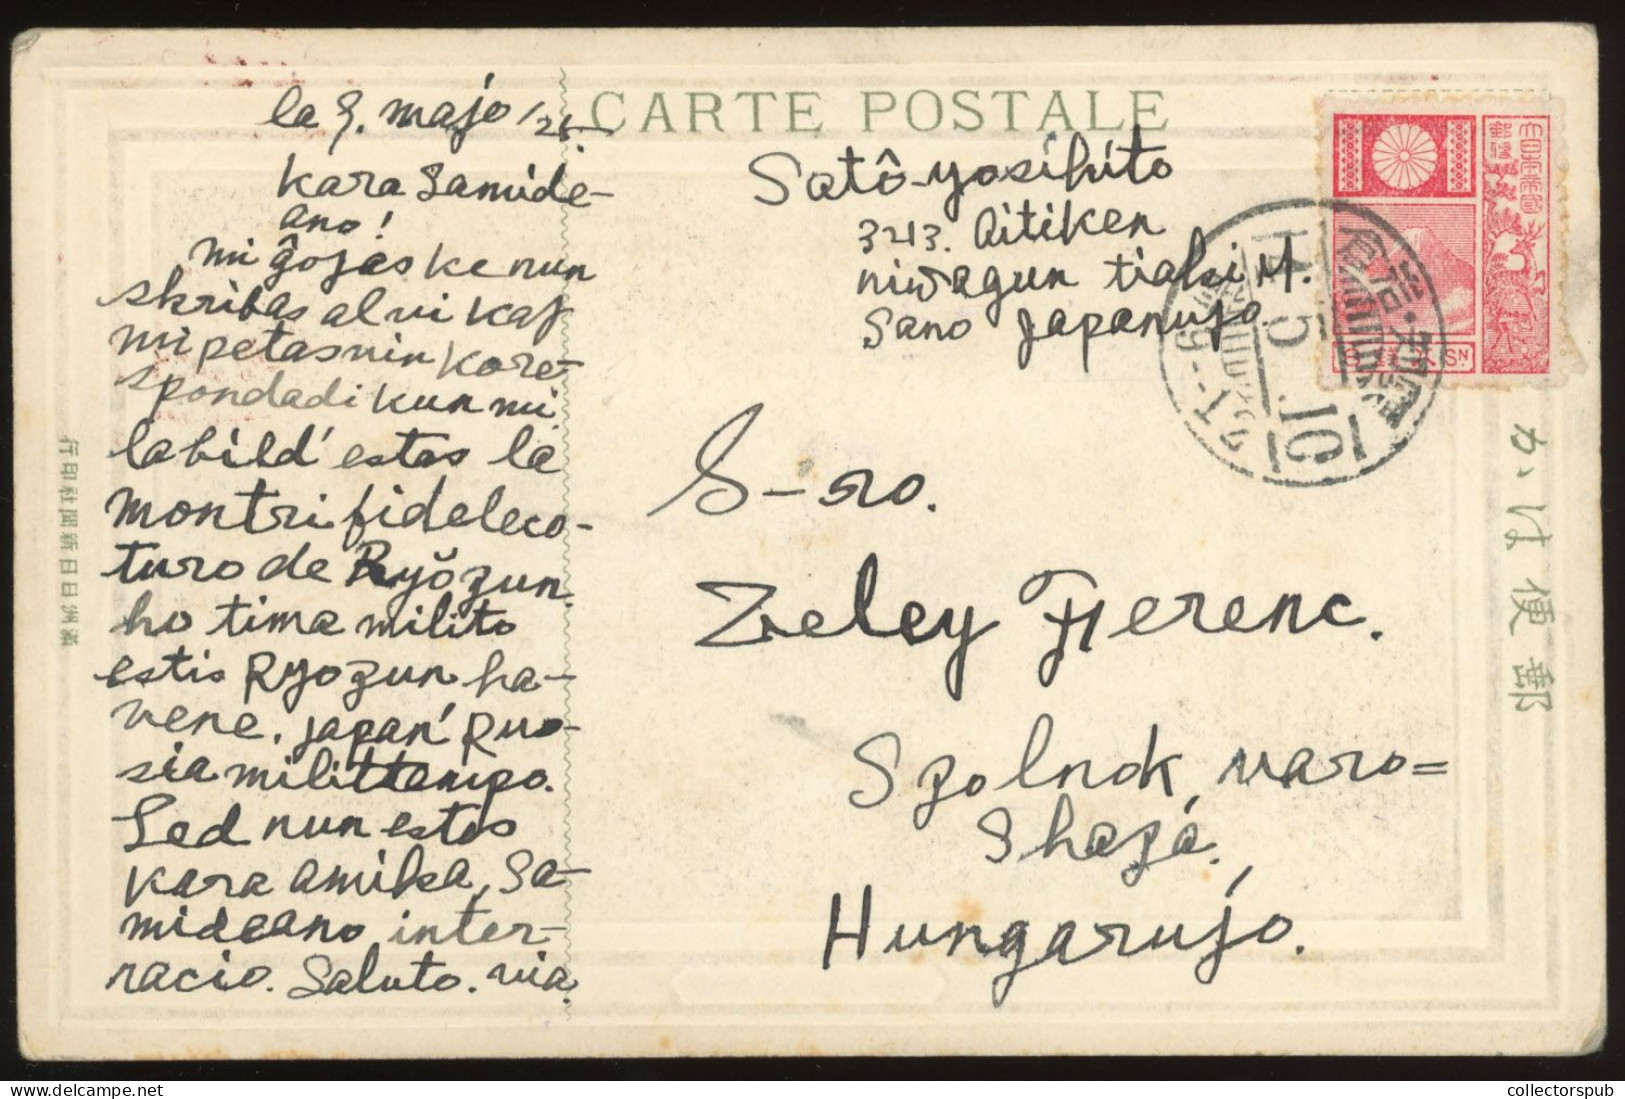 CARTE POSTALE
la 9. majo
kara Samide-
ano!
mi ĝojas ke nun
skribas al vi kaj
mi petas vin kore-
spondadi kun mi
la bild' estas la
montri fideleco-
turo de Ryŏzun.
ho tima milito
estis Ryozun ha-
vene. japan' Ruo-
sia milittempo.
Sed nun estas
kara amika, Sa-
mideano inter-
nacio. Saluto. via.
Satô-yosihito
3213. Aitiken
niwagun tiaki M.
Sano Japanujo
S-ro.
Zeley Ferenc.
Szolnok, varo=
Shaza.
Hungarujo.
郵便はかき
滿洲日日新聞社印行
SN.
10